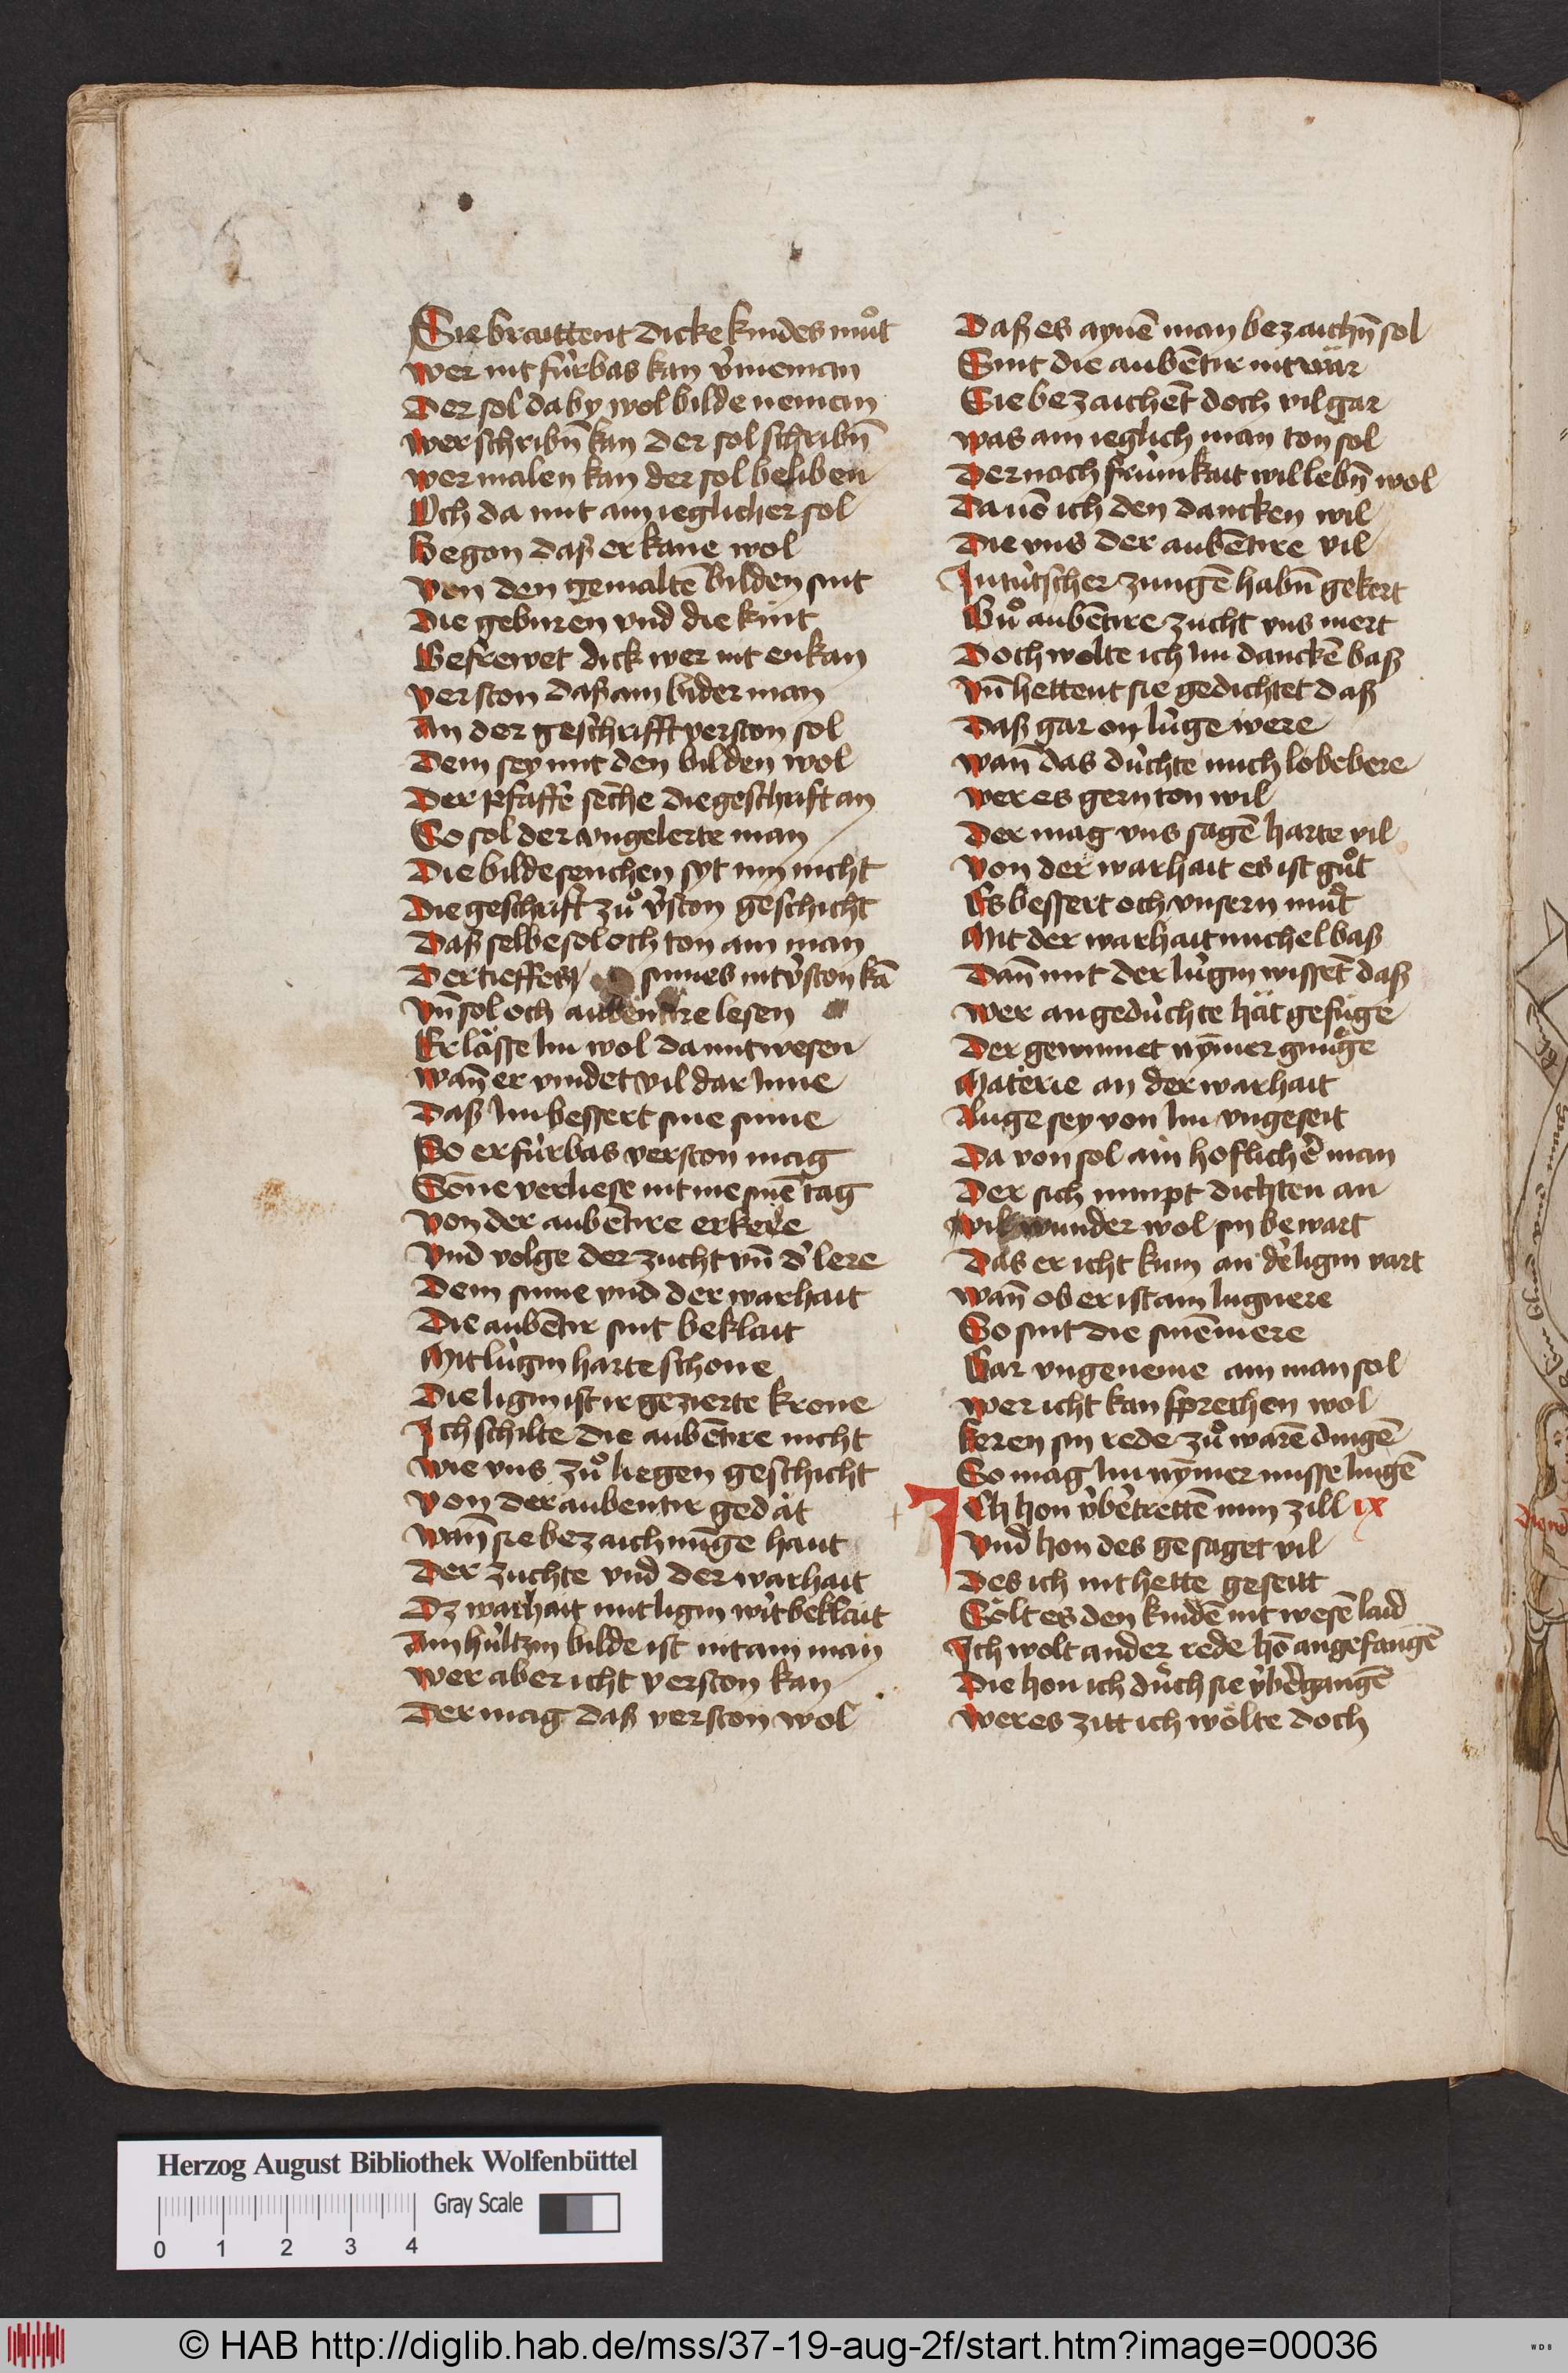 Sie braittent dicke kindes muͦt
wer nit fúrbas kan v̓nieman
Der sol da by wol bilde neman
wer schribn̄ kan der sol schribn̄
wer malen kan der sol beliben
Och da mit ain ieglicher sol
Begon daß er kane wol
von den gemaltē bilden sint
Die geburen vnd die kint
Gefrewet dick wer nit enkan
verston daß ain bider man
An der geschrifft verston sol
Dem sey mit den bilden wol
Der pfaffe seche die geschrift an
So sol der vngelerte man
Die bilde senchen syt nun nicht
Die geschrift zuͦ v̓ston geschicht
Daß selbe sol och ton ain man
Der tieffes sinnes nit v̓ston kā
Vn̄ sol och aubentúre lesen
Er lässe Im wol da mit wesen
wan̄ er vindet vil dar Inne
Daß Im bessert sine sinne
So er fúrbas verston mag
So ne verliese nit me sinē tag
Von der aubentúre er kere
Vnd volge der zucht vn̄ d̓ lere
Dem sinne vnd der warhait
Die aubentúr sint beklait
Mit lúgin harte schone
Die ligin ist ir gezierte krone
Ich schilte die aubentúre nicht
wie vns zuͦ liegen geschicht
Von der aubentúr gedät
wan̄ sie bezaichnúge haut
Der zuchte vnd der warhait
Dz warhait mit ligin wirt beklait
Ain húltzin bilde ist nit ain man
wer aber icht verston kan
Der mag daß verston wol
Daß es aynē man bezaichn̄ sol
Sint die aubentúr nit wär
Sie bezaichēt doch vil gar
was ain ieglich man ton sol
Der nach frúmkait wil lebn̄ wol
Da uō ich den dancken wil
Die vns der aubentúre vil
In tútscher zungē habn̄ gekert
Guͦ aubentúre zucht vns mert
Doch wolte ich Im danckē baß
Vn̄ hettent sie gedichtet daß
Daß gar on lúge were
wan̄ das dúchte mich lobebere
wer es gern ton wil
Der mag vns sagē harte vil
Von der warhait es ist guͦt
Es bessert och vnsern muͦt
Mit der warhait michel baß
Dan̄ mit der lúgin wissēt daß
wer an gedúchte hät gefuͦge
Der gewinnet nȳmer gnuͦge
Materie an der warhait
Luge sey von Im vngeseit
Da von sol ain hoflicher man
Der sich nimpt dichten an
wil wunder wol sin bewart
Das er icht kum an d̓ ligin vart
wan̄ ob er ist ain lugnere
So sint die sinē mere
Gar vngeneme ain man sol
wer icht kan sprechen wol
keren sin rede zuͦ warē dingē
So mag Im nȳmer misse lingē
Ich hon v̓bertrettē min zill ix
Vnd hon des gesaget vil
Des ich nit hette geseitt
Sölt es den kindē nit wesē laid
Ich wolt ander rede hō angefangē
Die hon ich durch sie v̓bergangē
wer es zitt ich wölte doch
Herzog August Bibliothek Wolfenbüttel
Gray Scale
0 1 2 3 4
© HAB http://diglib.hab.de/mss/37-19-aug-2f/start.htm?image=00036
WDB